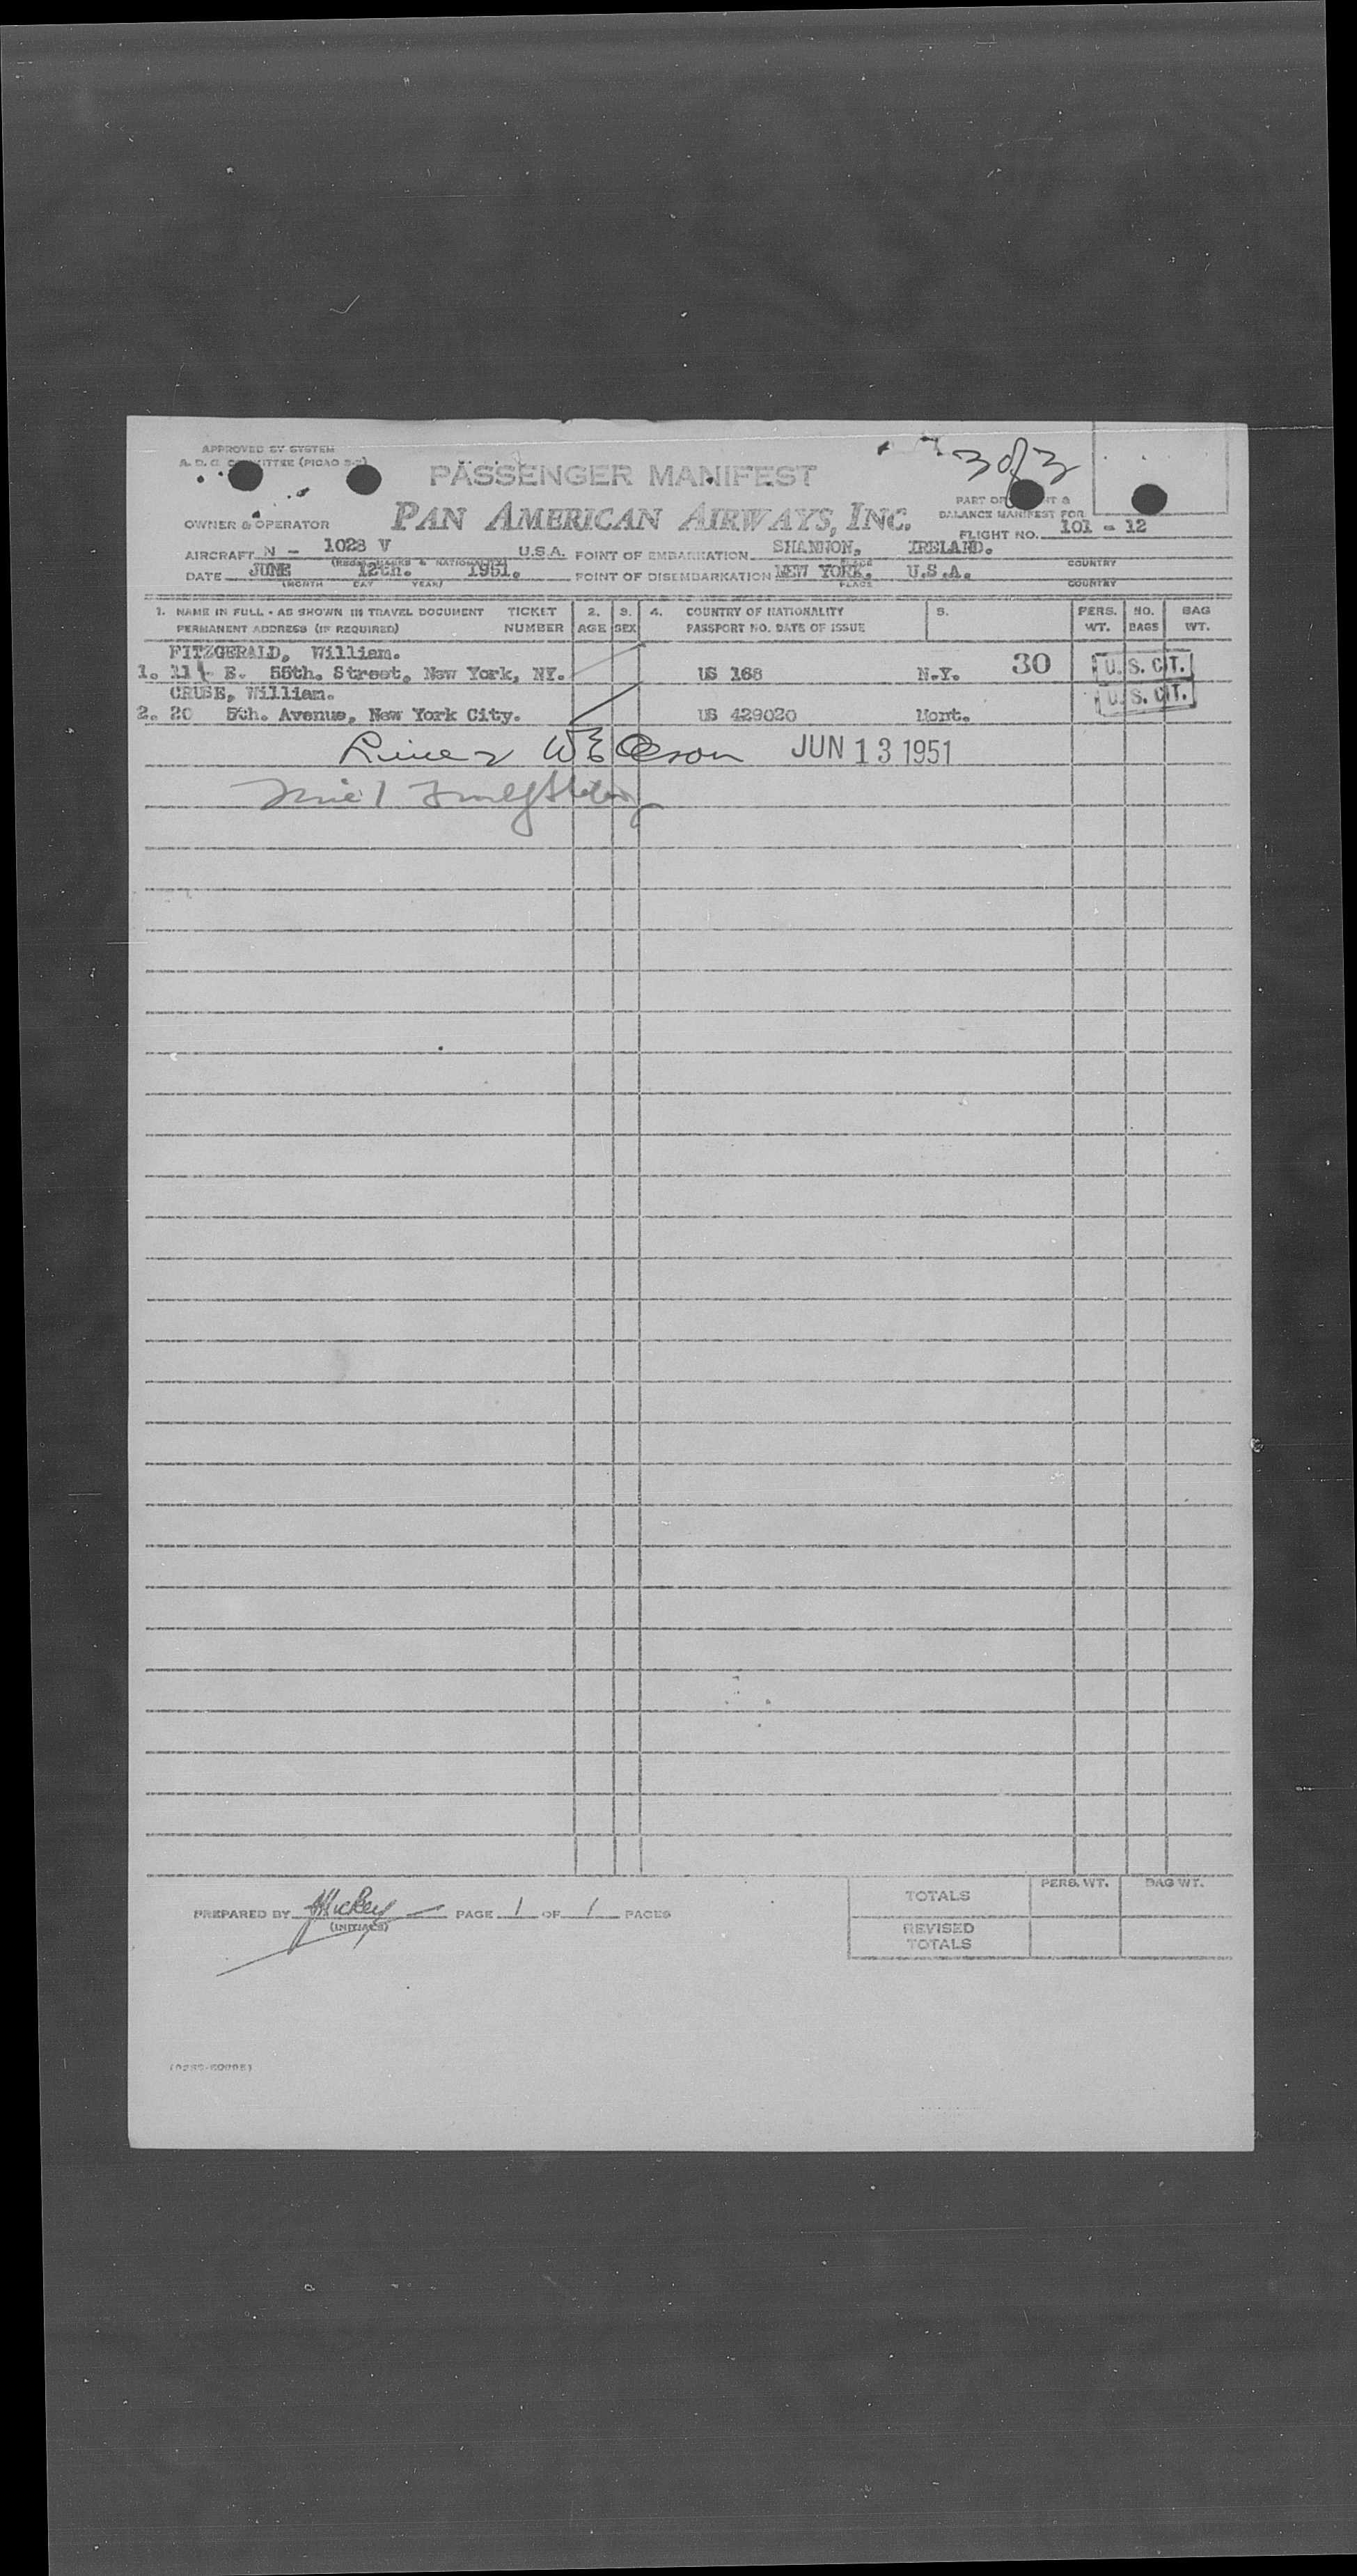 APPROVED BY SYSTEM
A. D. C. COMMITTEE (PICAO
3 of 3
PASSENGER MANIFEST
PART OF
BALANCE MANIFEST FOR
OWNER & OPERATOR PAN AMERICAN AIRWAYS, INC.
FLIGHT NO. 101 - 12
AIRCRAFT N - 1028 V U.S.A. POINT OF EMBARKATION SHANNON, IRELAND.
PLACE COUNTRY
DATE JUNE 12th. 1951. POINT OF DISEMBARKATION NEW YORK, U.S.A.
(MONTH DAY YEAR) PLACE COUNTRY
1. NAME IN FULL - AS SHOWN IN TRAVEL DOCUMENT TICKET 2. 3. 4. COUNTRY OF NATIONALITY 5. PERS. NO. BAG
PERMANENT ADDRESS (IF REQUIRED) NUMBER AGE SEX PASSPORT NO. DATE OF ISSUE WT. BAGS WT.
FITZGERALD, William.
1. 11 E. 55th. Street, New York, NY. US 168 N.Y. 30 U.S. CIT.
CRUSE, William. U.S. CIT.
2. 20 5th. Avenue, New York City. US 429020 Mont.
JUN 13 1951
PREPARED BY PAGE 1 OF 1 PAGES
(INITIALS)
PERS. WT. BAG WT.
TOTALS
REVISED
TOTALS